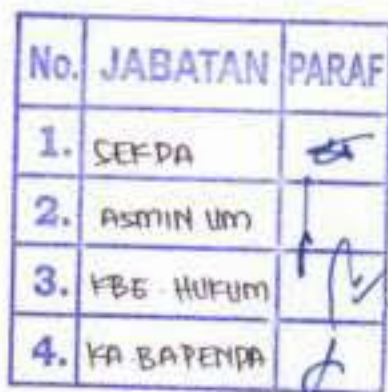 No. JABATAN PARAF
1. SEKDA
2. ASMIN UM
3. KBE. HUKUM
4. KA BAPENDA